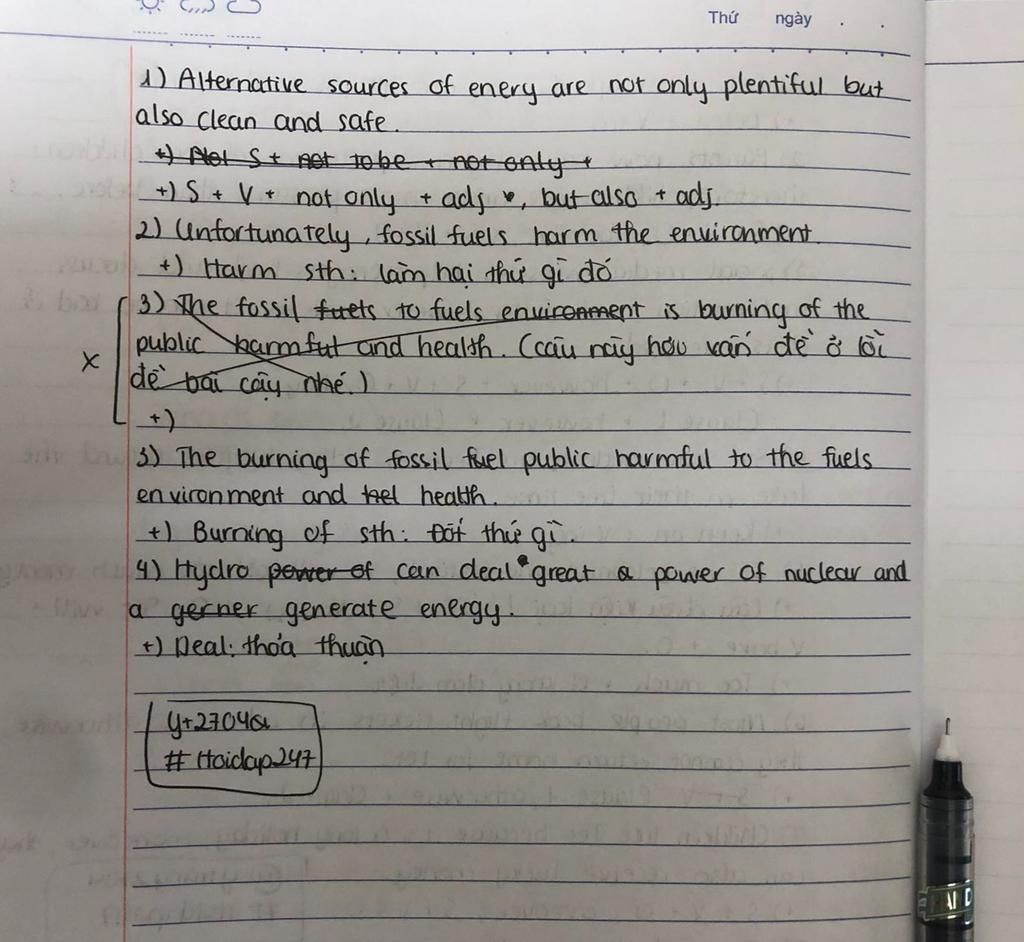 Thứ ngày . .
1) Alternative sources of enery are not only plentiful but
also clean and safe.
+) Not S + not to be + not only +
+) S + V + not only + adj, but also + adj.
2) Unfortunately, fossil fuels harm the environment.
+) Harm sth: làm hại thứ gì đó
3) The fossil fuels to fuels environment is burning of the
public harmful and health. (câu này hơi vấn đề ở lỗi
đề bài cậy nhé.)
+)
x
3) The burning of fossil fuel public harmful to the fuels
environment and heal health.
+) Burning of sth: Đốt thứ gì.
4) Hydro power of can deal great a power of nuclear and
a gerner generate energy.
+) Deal: thỏa thuận
# Hoidap247